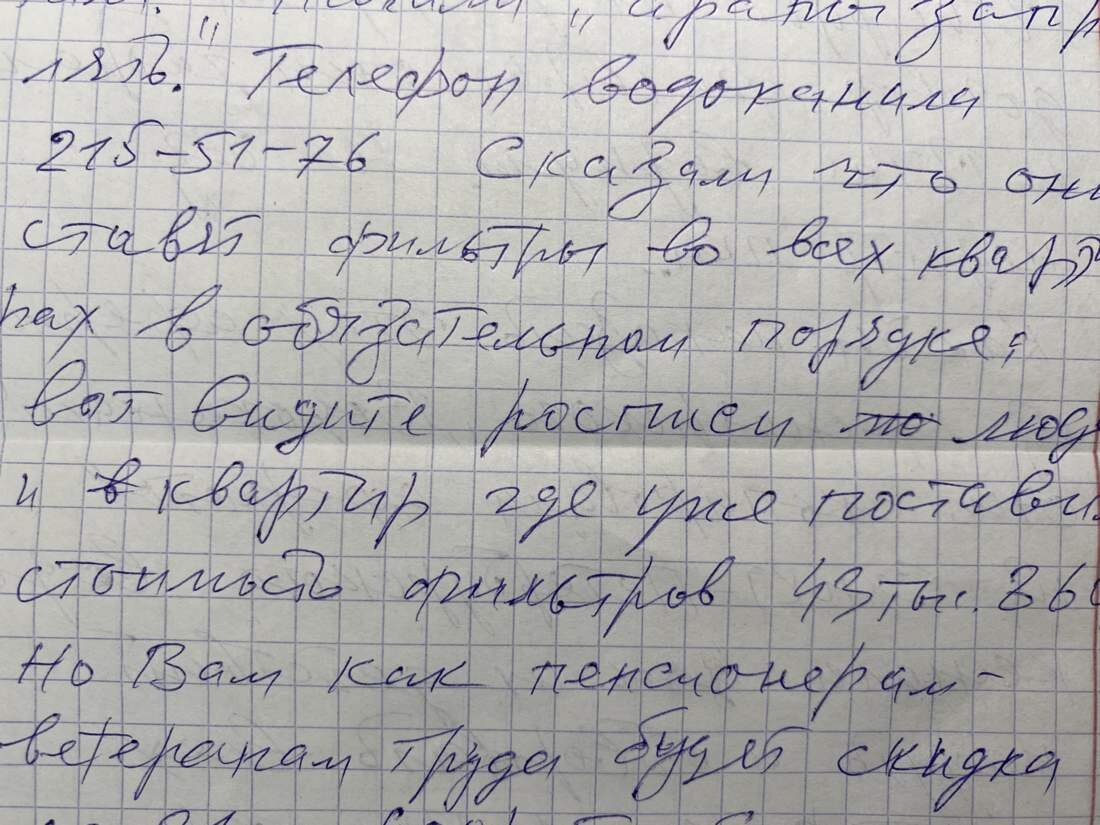 лять." Телефон водоканала
215-51-76 Сказали что они
ставят фильтры во всех кварти
рах в обязательном порядке:
вот видите росписи по люд
и в квартир где уже постави
стоимость фильтров 43 тыс. 860
Но Вам как пенсионерам-
ветеранам труда будет скидка